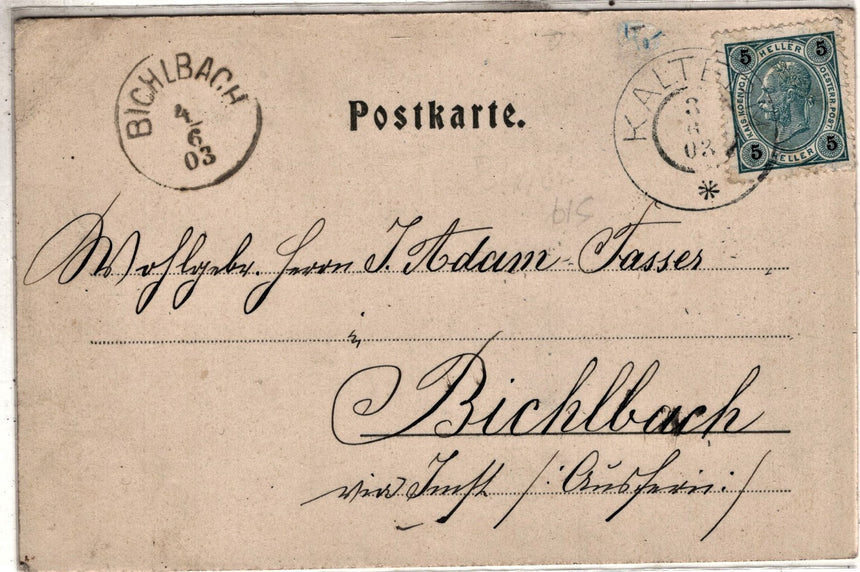 BICHLBACH
4/6
03
Postkarte.
KALTE
3
6
03
*
5 HELLER 5
KAIS. KOENIGL. OESTERR. POST.
5 HELLER 5
619
Wohlgebr. Herrn J. Adam Tasser
in
Bichlbach
via Imst /: Ausfern :/